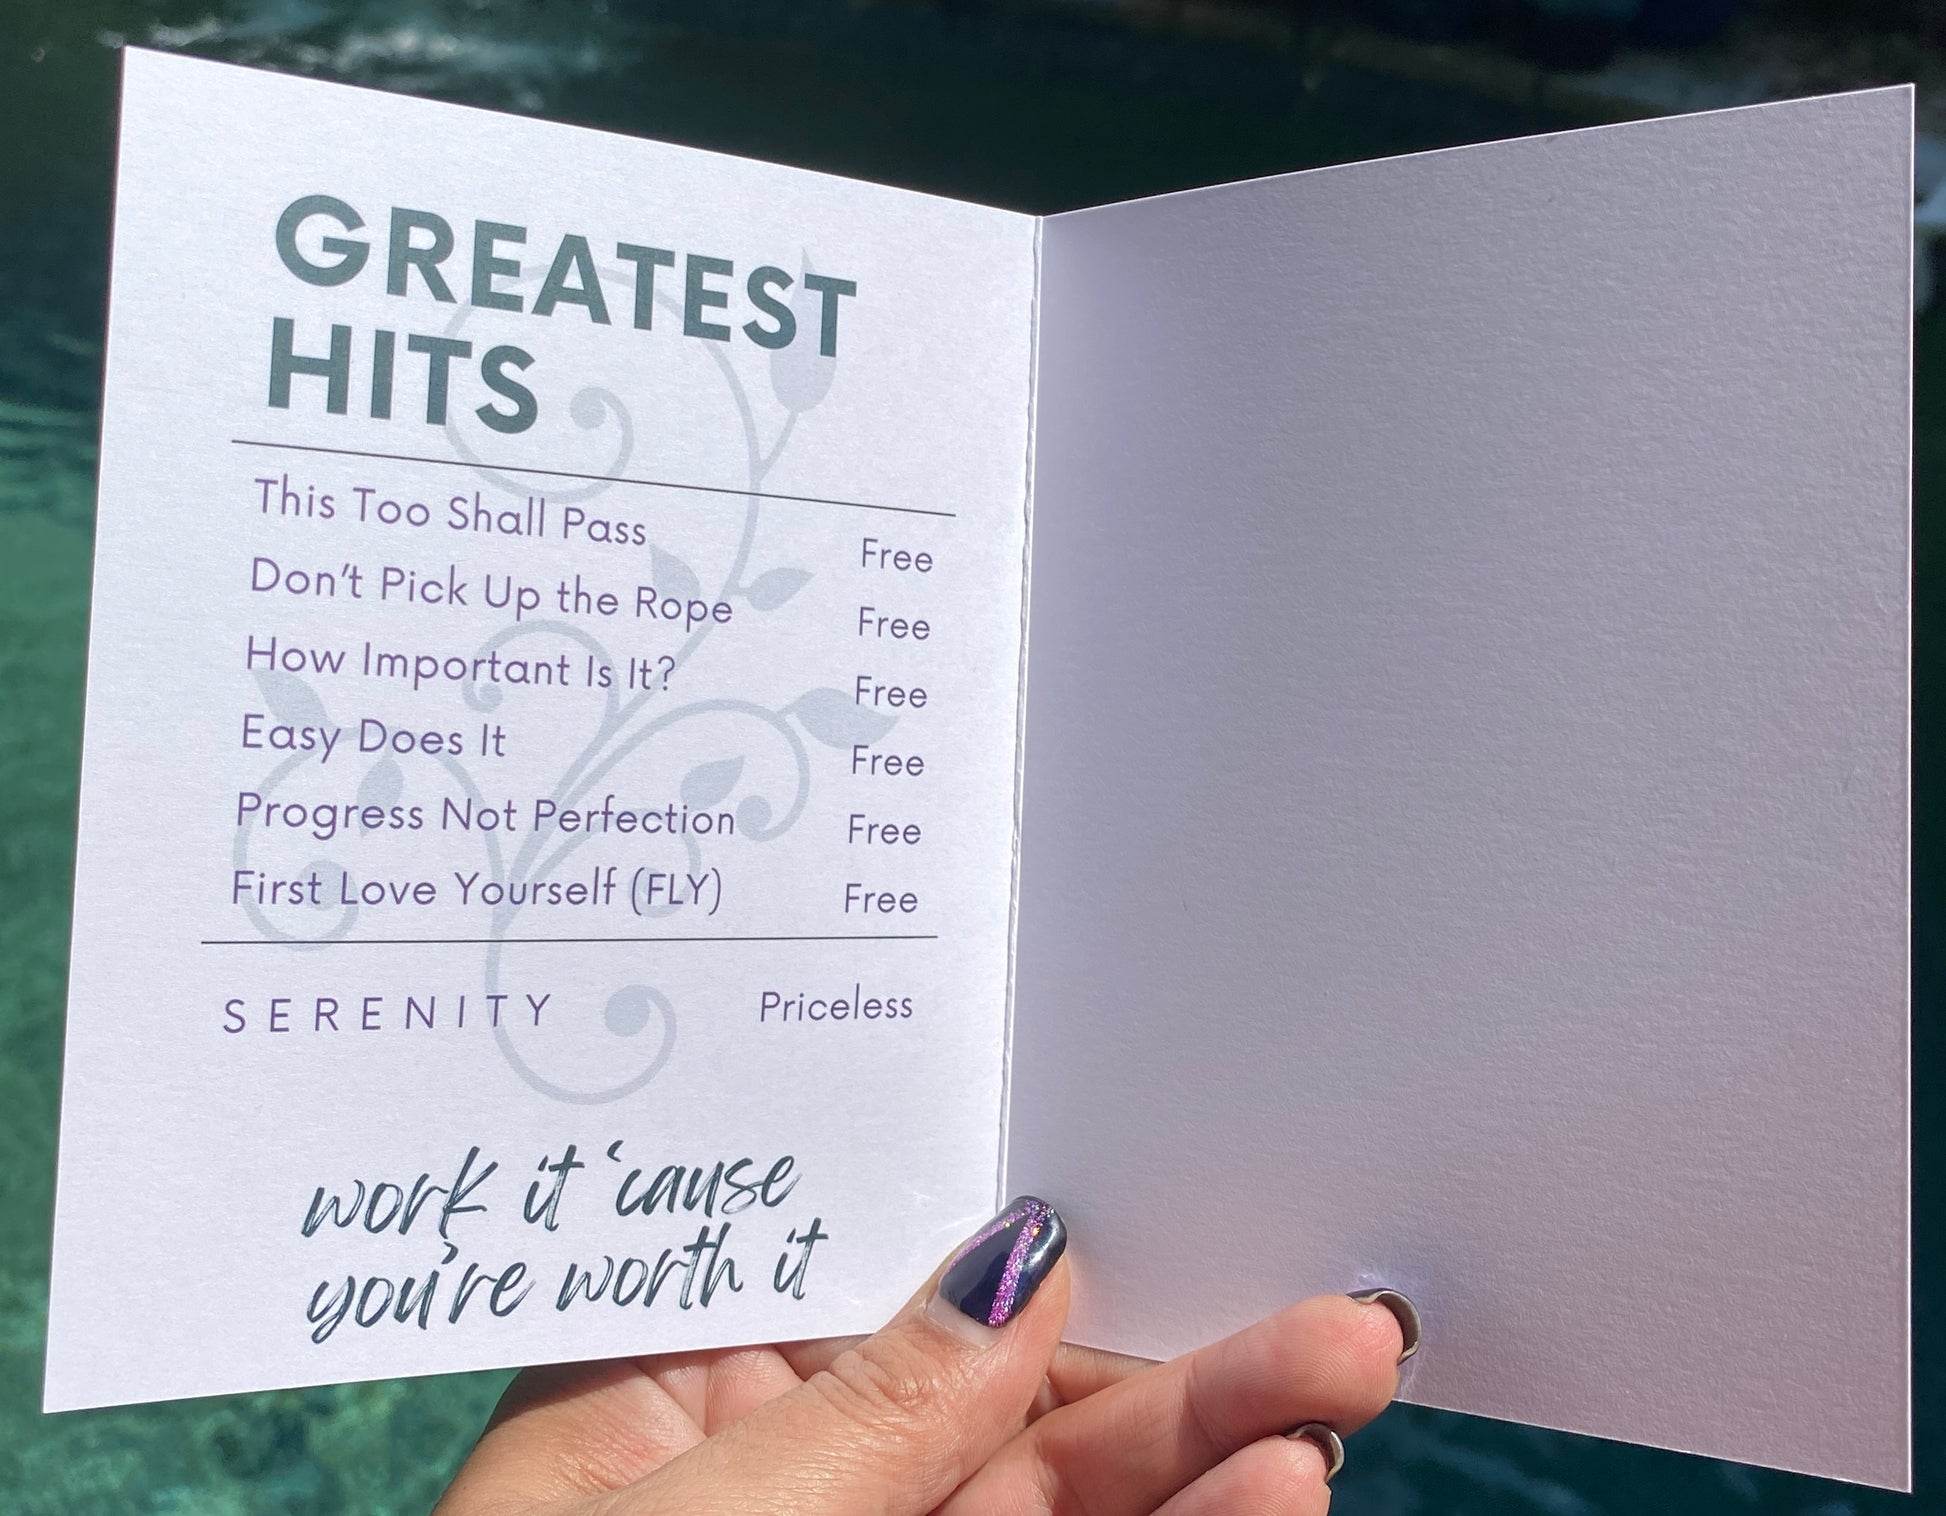 GREATEST
HITS
This Too Shall Pass Free
Don't Pick Up the Rope Free
How Important Is It? Free
Easy Does It Free
Progress Not Perfection Free
First Love Yourself (FLY) Free
SERENITY Priceless
work it ‘cause
you're worth it